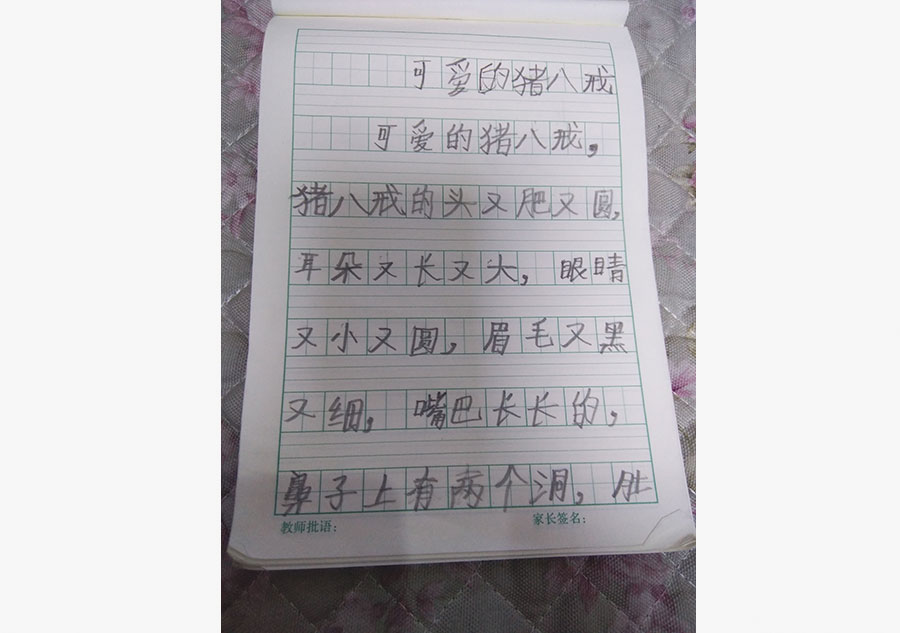 可爱的猪八戒
可爱的猪八戒，
猪八戒的头又肥又圆，
耳朵又长又大，眼睛
又小又圆，眉毛又黑
又细，嘴巴长长的，
鼻子上有两个洞，肚
教师批语： 家长签名：